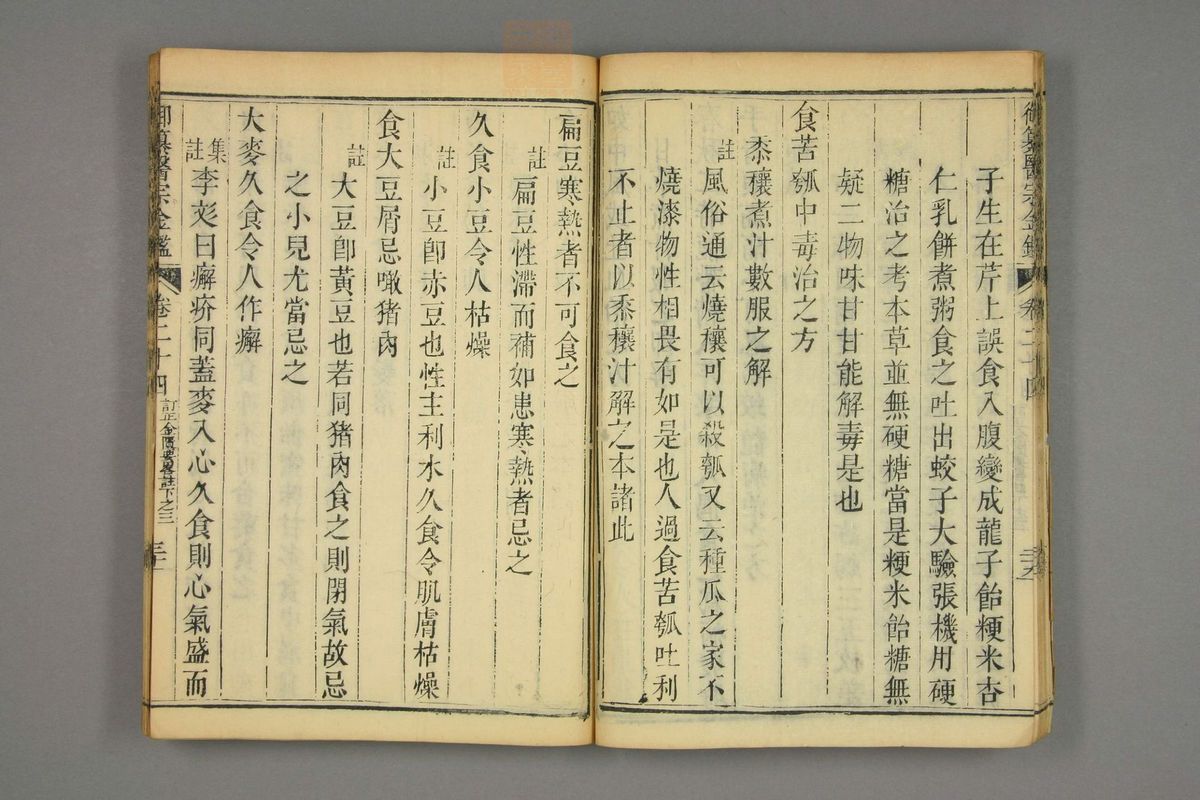 御纂醫宗金鑑
卷二十四
子生在芹上誤食入腹變成龍子飴粳米杏
仁乳餅煮粥食之吐出蛟子大驗張機用硬
糖治之考本草並無硬糖當是粳米飴糖無
疑二物味甘甘能解毒是也
食苦瓠中毒治之方
黍穰煮汁數服之解
註
風俗通云燒穰可以殺瓠又云種瓜之家不
燒漆物性相畏有如是也人過食苦瓠吐利
不止者以黍穰汁解之本諸此
扁豆寒熱者不可食之
註
扁豆性滯而補如患寒熱者忌之
久食小豆令人枯燥
註
小豆卽赤豆也性主利水久食令肌膚枯燥
食大豆屑忌噉猪肉
註
大豆卽黃豆也若同猪肉食之則閉氣故忌
之小兒尤當忌之
大麥久食令人作癬
集註
李彣曰癬疥同蓋麥入心久食則心氣盛而
御纂醫宗金鑑
卷二十四
訂正金匱要畧註下之三